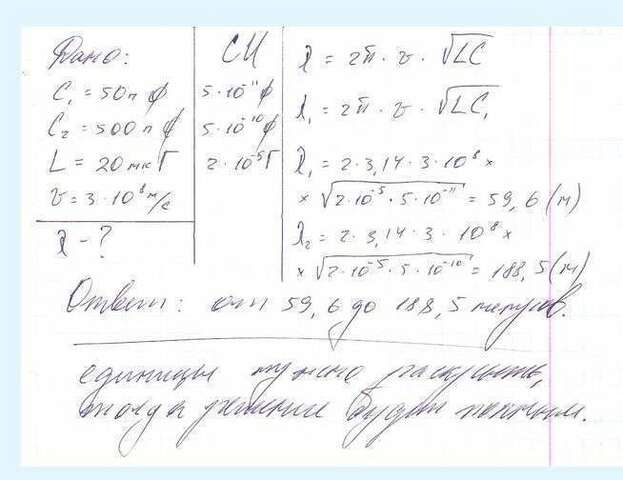 Дано:
C₁ = 50п ф
C₂ = 500 п ф
L = 20 мк Г
v = 3 · 10⁸ м/с
λ - ?
СИ
5 · 10⁻¹¹ ф
5 · 10⁻¹⁰ ф
2 · 10⁻⁵ Г
λ = 2π · v · √LC
λ₁ = 2π · v · √LC₁
λ₁ = 2 · 3,14 · 3 · 10⁸ ×
× √2·10⁻⁵ · 5·10⁻¹¹ = 59,6 (м)
λ₂ = 2 · 3,14 · 3 · 10⁸ ×
× √2·10⁻⁵ · 5·10⁻¹⁰ = 188,5 (м)
Ответ: от 59,6 до 188,5 метров.
единицы нужно раскрыть,
тогда решение будет полным.